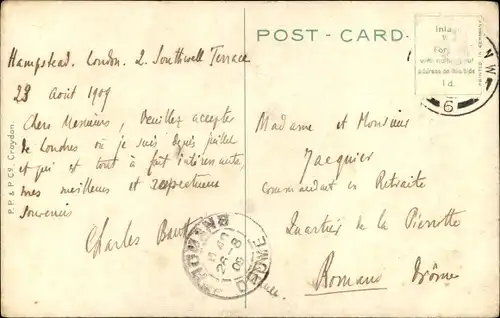 POST - CARD.
Hampstead. London. 2. Southwell Terrace
23 Août 1909
Chers Messieurs, Veuillez accepter
de Londres où je suis depuis juillet
et qui est tout à fait intéressante,
mes meilleurs et respectueux
souvenirs
Charles
Madame et Monsieur
Jacquier
Commandant en Retraite
Quartier de la Pierrotte
Romans Drôme
Inla
For
address on this side
1d.
PRINTED IN GERMANY
N.W
6
P.P & P Co. Croydon.
ROMANS
26-8
09
DROME